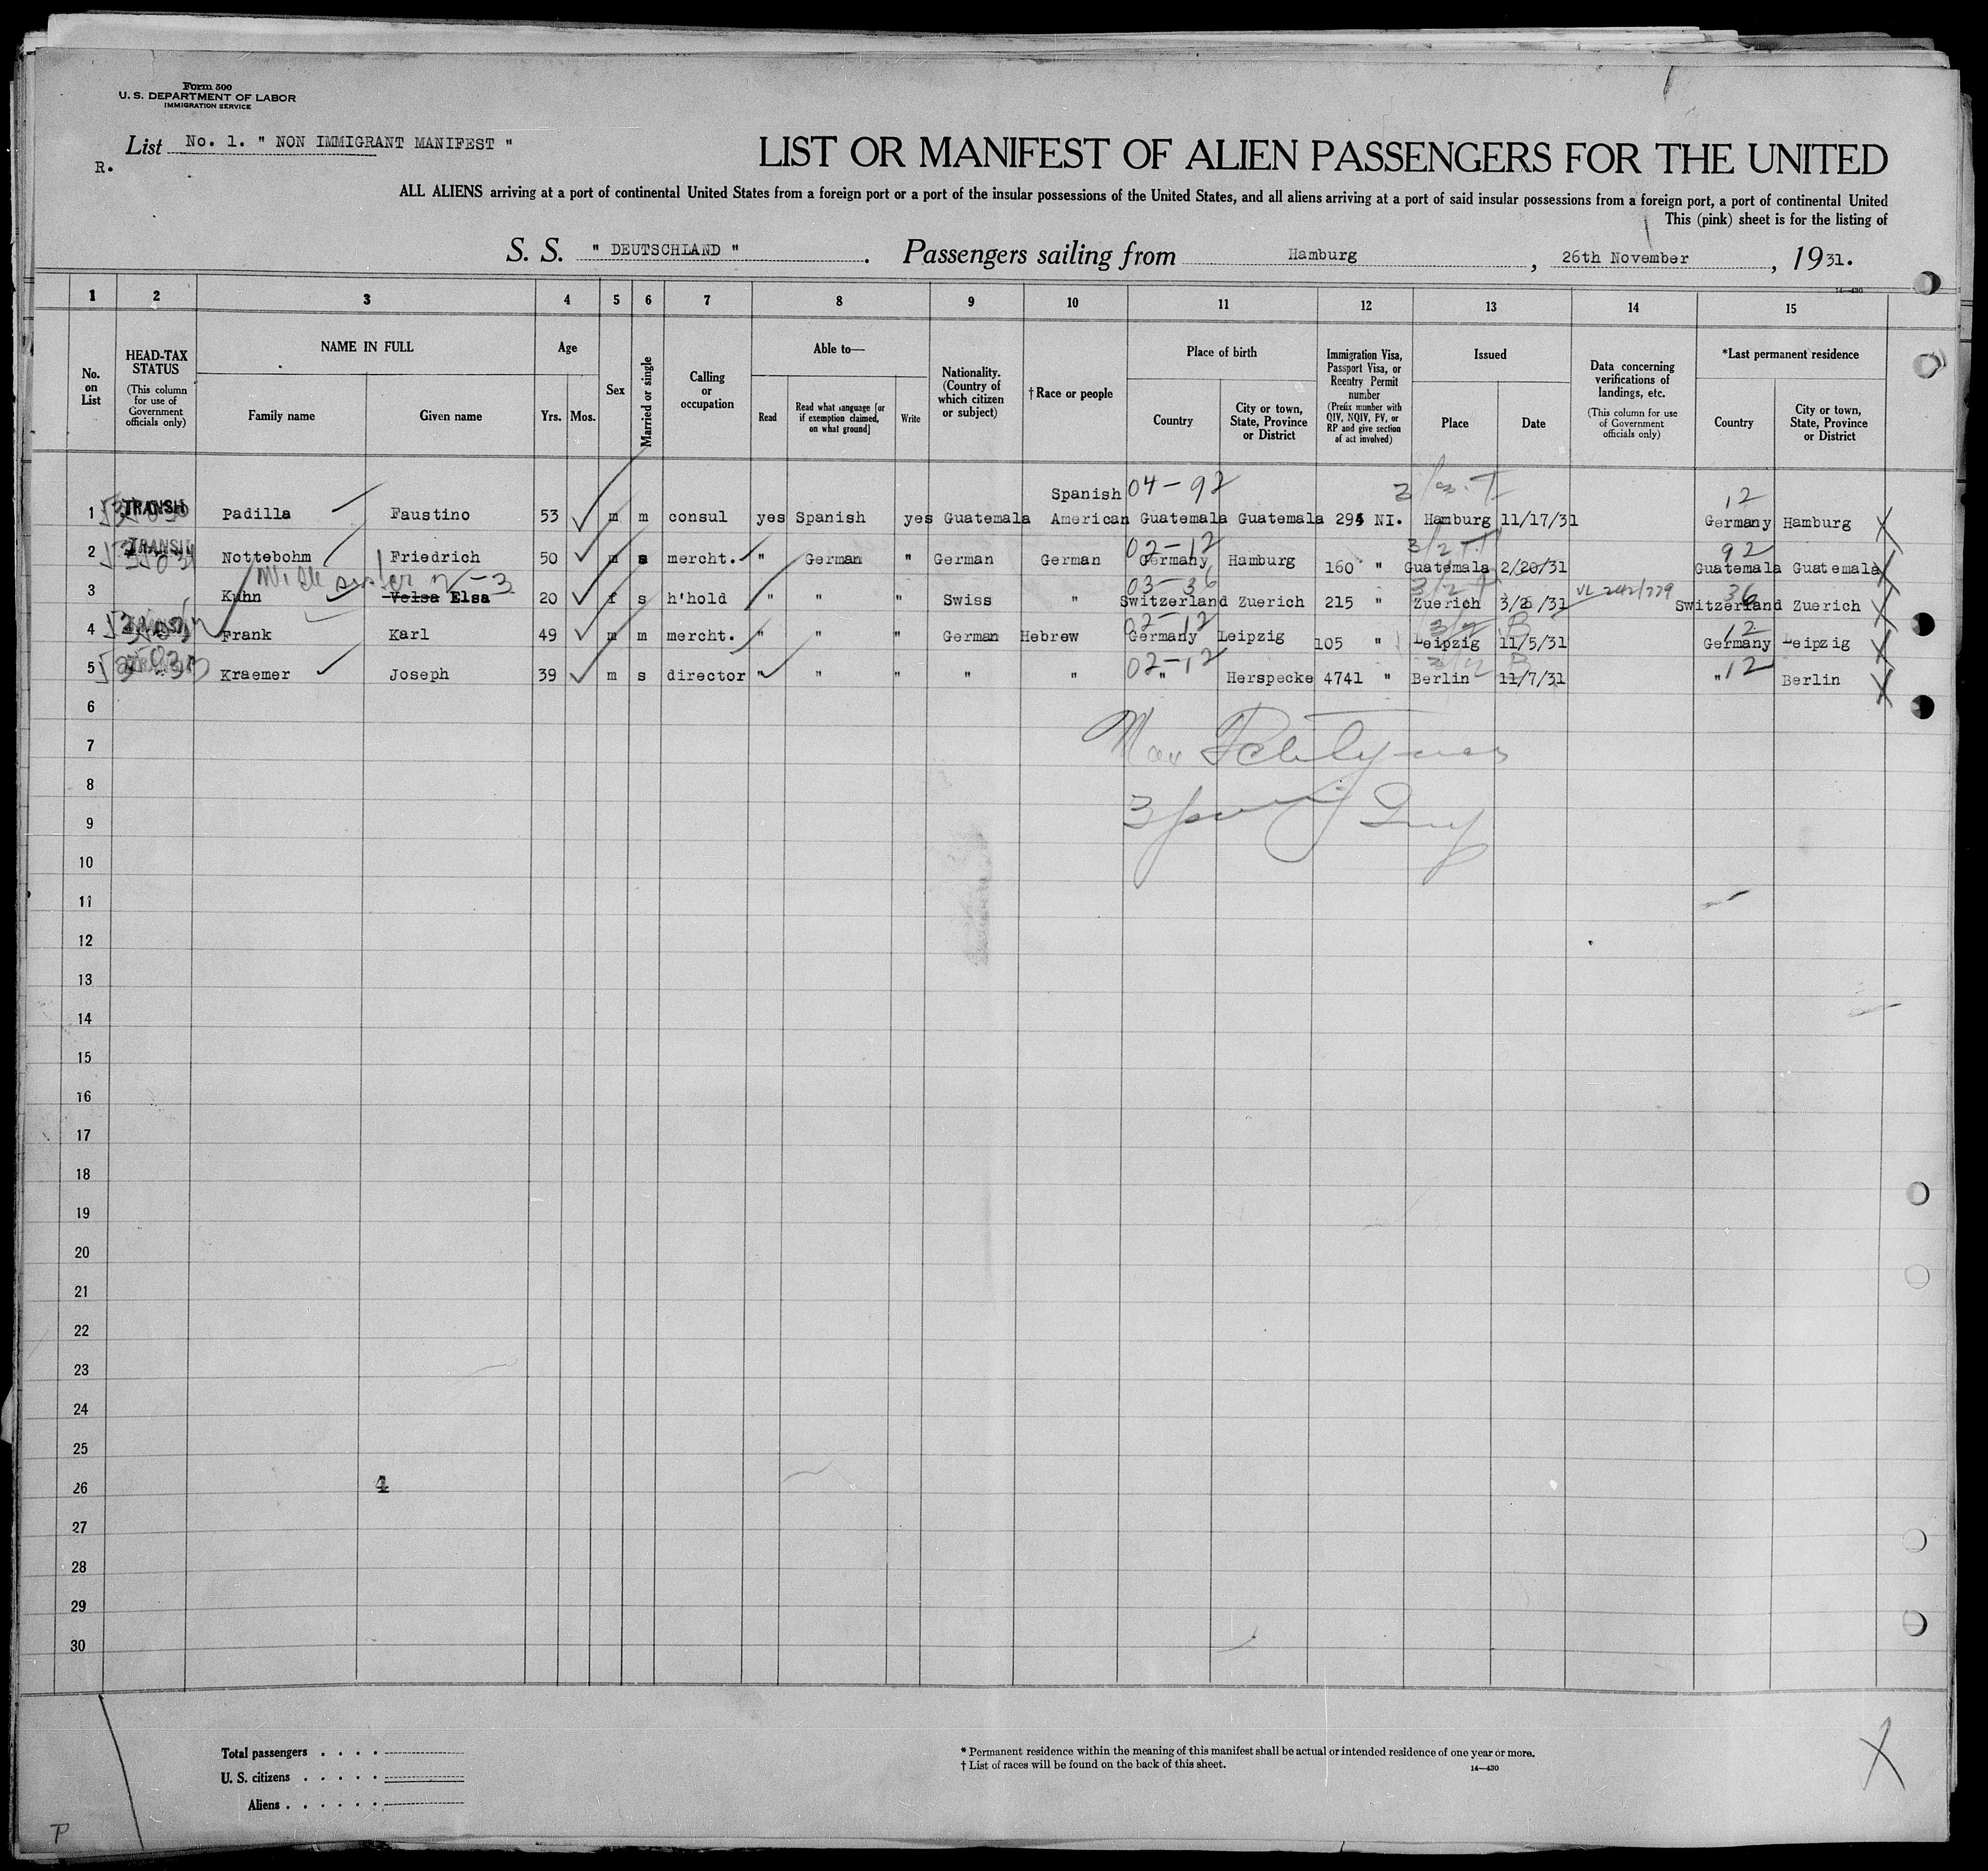 Form 500
U. S. DEPARTMENT OF LABOR
IMMIGRATION SERVICE
List No. 1. " NON IMMIGRANT MANIFEST "
R.
LIST OR MANIFEST OF ALIEN PASSENGERS FOR THE UNITED
ALL ALIENS arriving at a port of continental United States from a foreign port or a port of the insular possessions of the United States, and all aliens arriving at a port of said insular possessions from a foreign port, a port of continental United
This (pink) sheet is for the listing of
S. S. " DEUTSCHLAND " . Passengers sailing from Hamburg , 26th November , 1931.
14—430
1 2 3 4 5 6 7 8 9 10 11 12 13 14 15
No. on List
HEAD-TAX STATUS
(This column for use of Government officials only)
NAME IN FULL
Family name Given name
Age
Yrs. Mos.
Sex
Married or single
Calling or occupation
Able to—
Read
Read what language [or if exemption claimed, on what ground]
Write
Nationality. (Country of which citizen or subject)
†Race or people
Place of birth
Country
City or town, State, Province or District
Immigration Visa, Passport Visa, or Reentry Permit number
(Prefix number with QIV, NQIV, PV, or RP and give section of act involved)
Issued
Place Date
Data concerning verifications of landings, etc.
(This column for use of Government officials only)
*Last permanent residence
Country
City or town, State, Province or District
Spanish 04-92 12
1 TRANSIT Padilla Faustino 53 m m consul yes Spanish yes Guatemala American Guatemala Guatemala 295 NI. Hamburg 11/17/31 Germany Hamburg X
02-12 92
2 TRANSIT Nottebohm Friedrich 50 m s mercht. " German " German German Germany Hamburg 160 " Guatemala 2/20/31 Guatemala Guatemala X
03-36 36
3 Kuhn Velsa Elsa 20 f s h'hold " " " Swiss " Switzerland Zuerich 215 " Zuerich 3/2/31 Switzerland Zuerich X
02-12 12
4 Frank Karl 49 m m mercht. " " " German Hebrew Germany Leipzig 105 " Leipzig 11/5/31 Germany Leipzig X
02-12 12
5 Kraemer Joseph 39 m s director " " " " " " Herspecke 4741 " Berlin 11/7/31 " Berlin X
6
7
8
9
10
11
12
13
14
15
16
17
18
19
20
21
22
23
24
25
26
27
28
29
30
4
Total passengers . . . .
U. S. citizens . . . . .
Aliens . . . . . .
* Permanent residence within the meaning of this manifest shall be actual or intended residence of one year or more.
† List of races will be found on the back of this sheet.
14—430
X
P